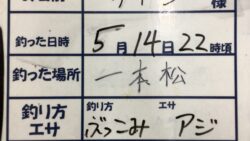 様
釣った日時 5月14日22時頃
釣った場所 一本松
釣り方 エサ
釣り方
エサ ぶっこみ アジ